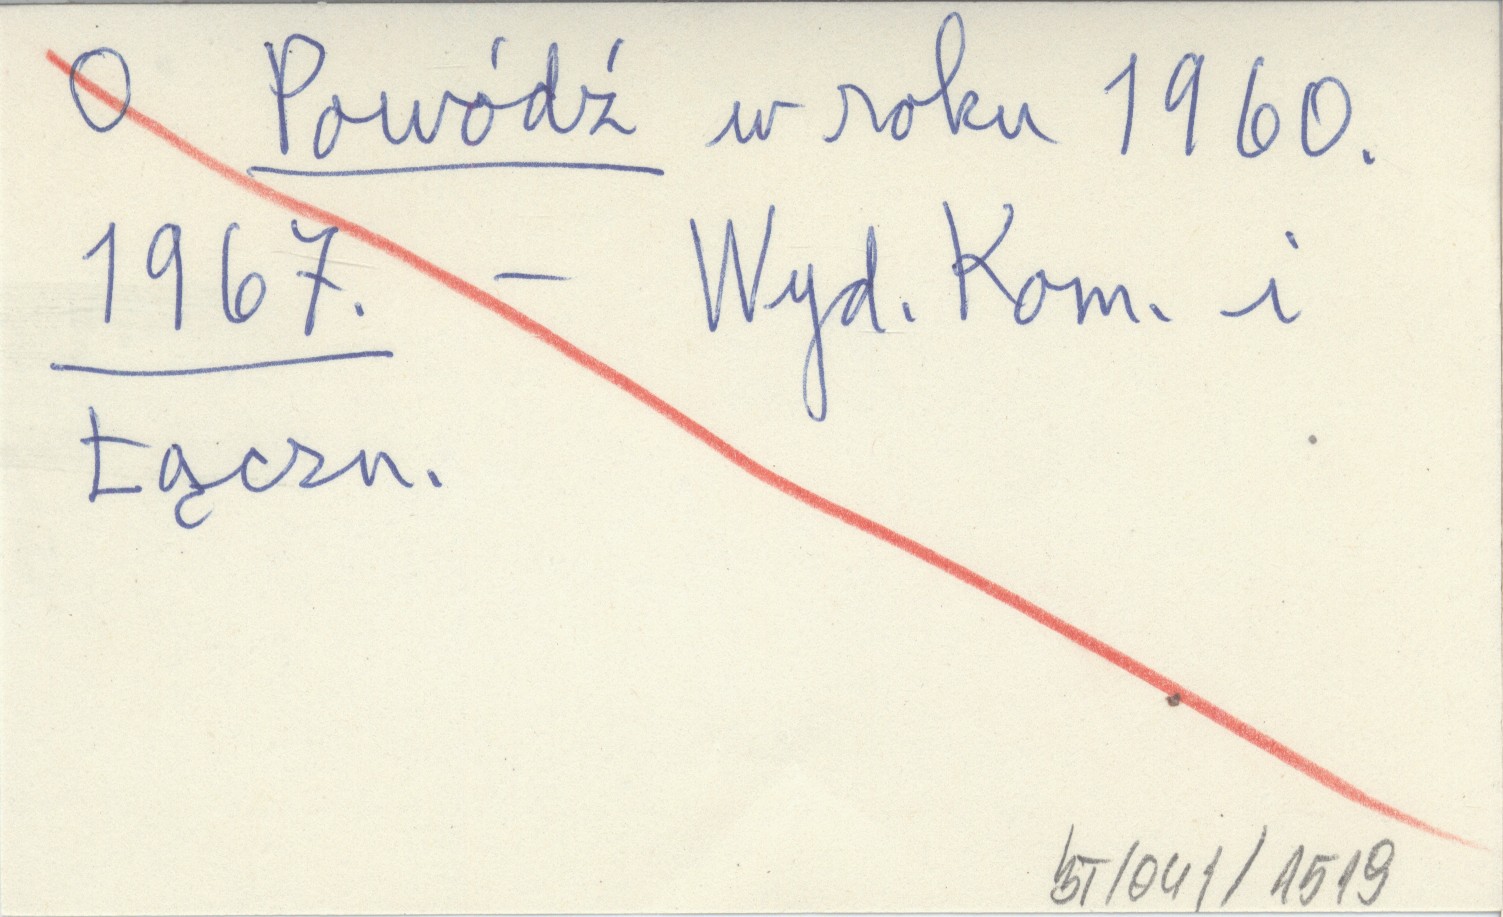 O Powódź w roku 1960.
1967. – Wyd. Kom. i
Łączn.
BT/041/1519